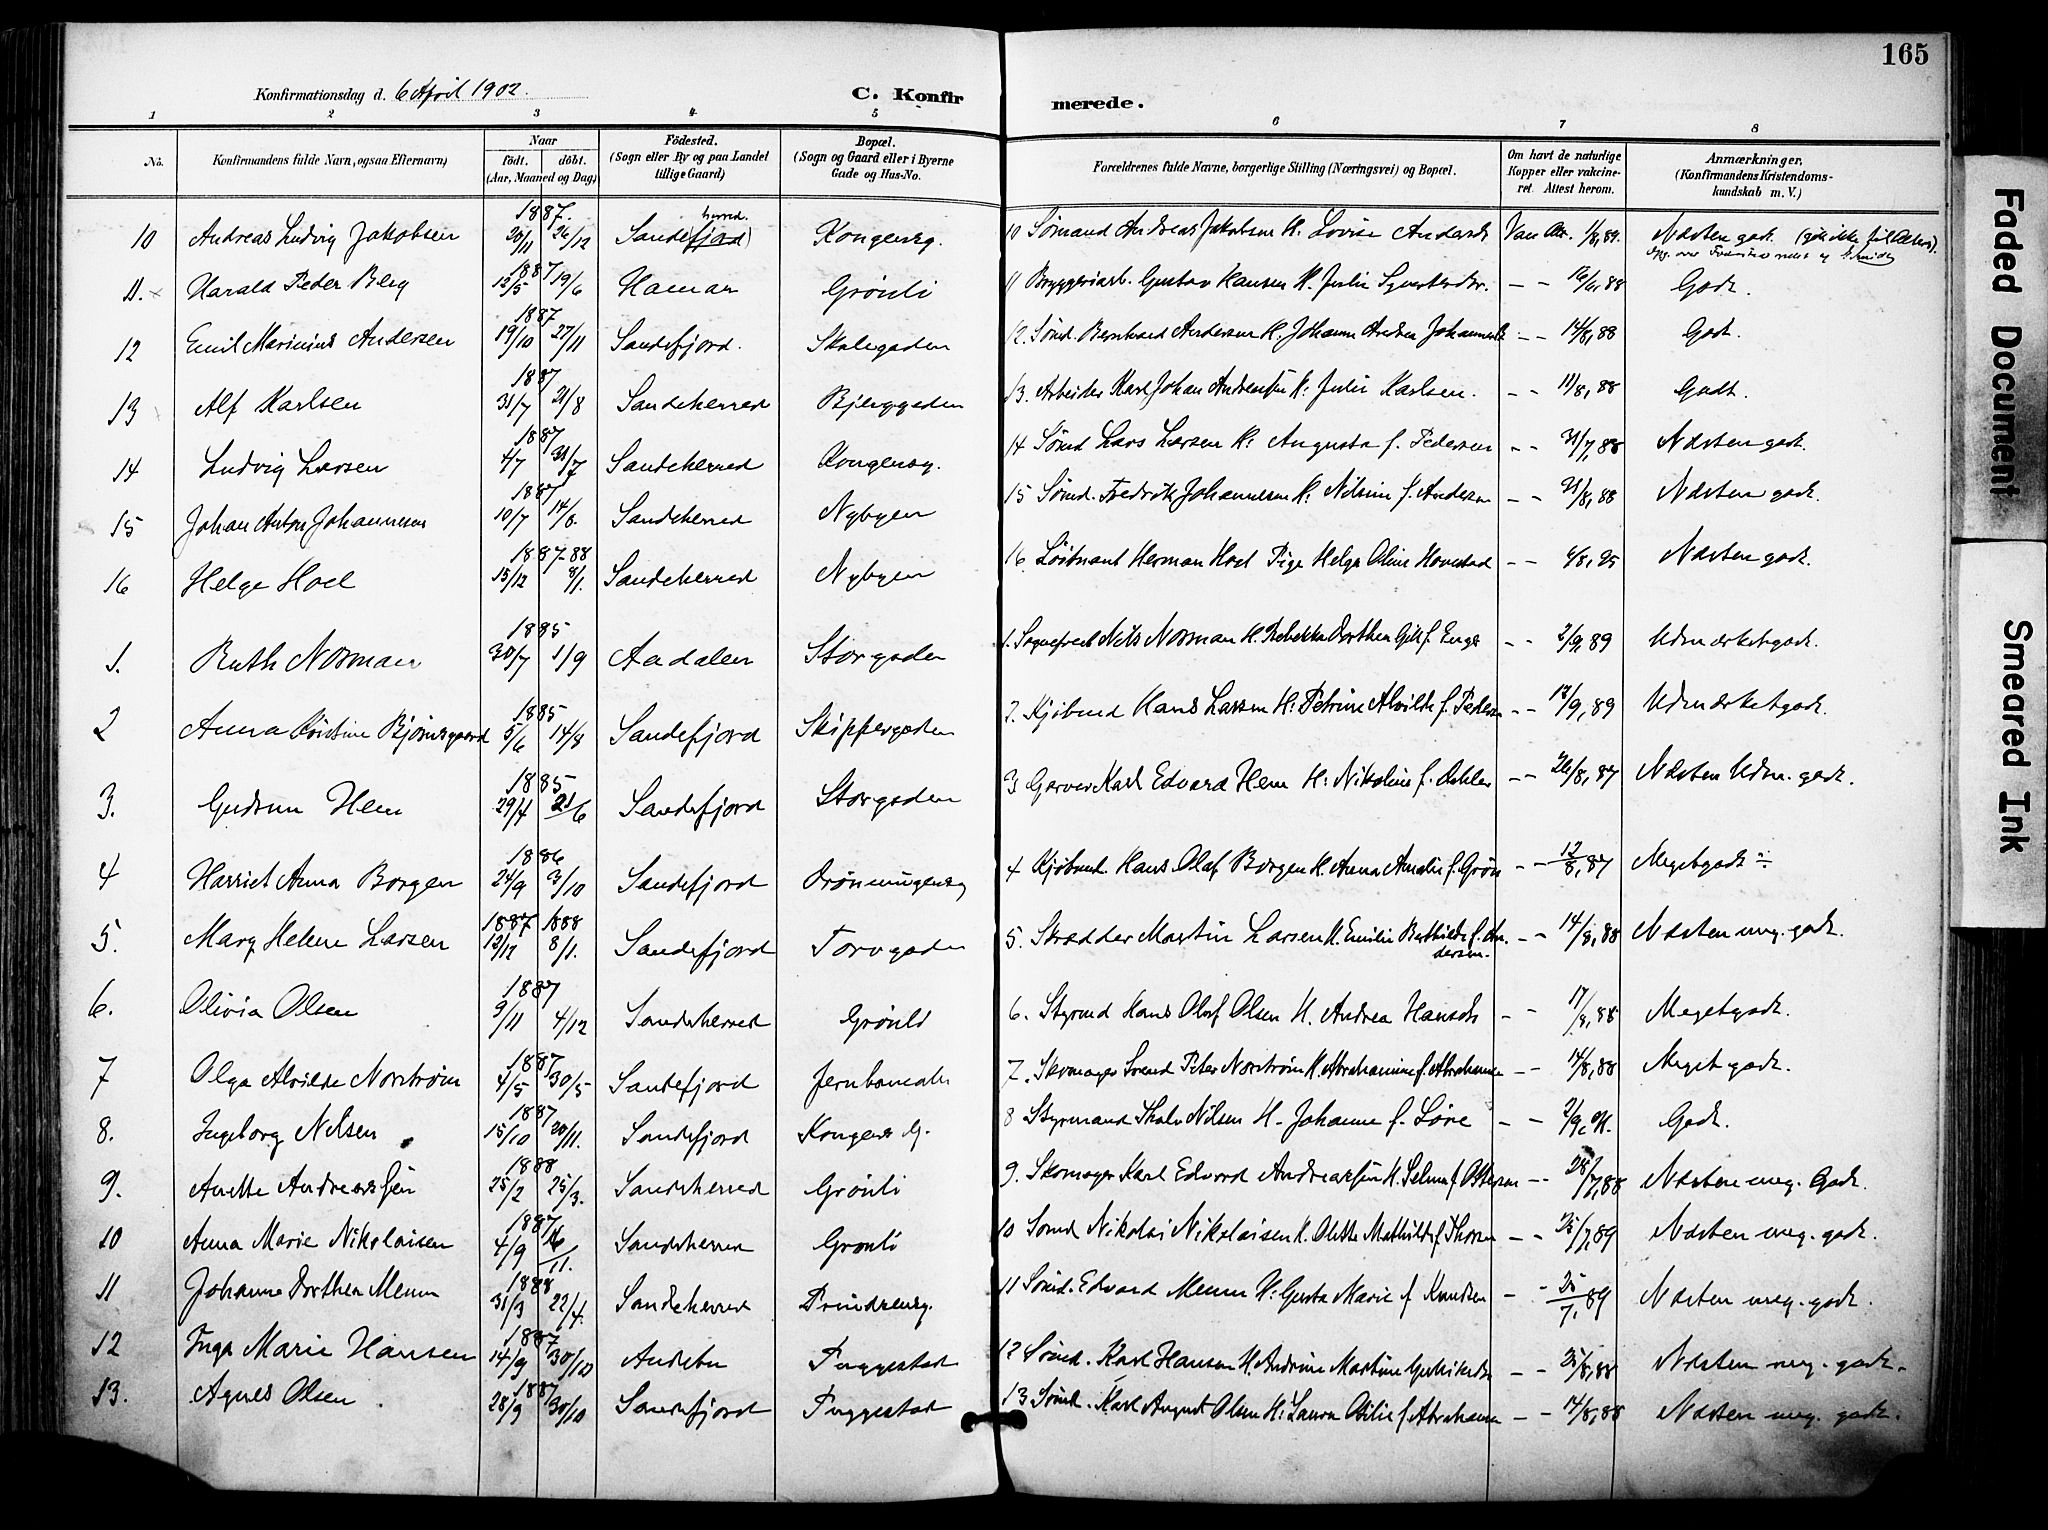 165
Konfirmationsdag d. 6 April 1902.
C. Konfir merede.
1 2 3 4 5 6 7 8
No. Konfirmandens fulde Navn, ogsaa Efternavn) Naar født. døbt. (Aar, Maaned og Dag) Födested. (Sogn eller By og paa Landet tillige Gaard) Bopæl. (Sogn og Gaard eller i Byerne Gade og Hus-No. Forældrenes fulde Navne, borgerlige Stilling (Næringsvei) og Bopæl. Om havt de naturlige Kopper eller vakcineret. Attest herom. Anmærkninger. (Konfirmandens Kristendomskundskab m. V.)
10 Andreas Ludvig Jakobsen 1887. 20/11 26/12 Sandefjord herred. Kongensg. 10 Sømand Andreas Jakobsen H. Lovise Andersd. Vac. Att. 1/8, 89. Næsten godt.
11. Harald Peder Berg 1887 12/5 19/6 Hamar Grønli 11 Bryggeriarb. Gustav Hansen H. Julie Syvertsdtr. - - 16/6, 88 Godt.
12 Emil Marinius Andersen 1887 19/10 27/11 Sandefjord. Skolegaden 12. Sømd. Bernhard Andersen H. Johanne Andrea Johannesd. - - 14/8, 88 Godt.
13 Alf Karlsen 1887 31/7 21/8 Sandeherred Bjerggaden 13. Arbeider Karl Johan Andreasen H. Julie Karlsen. - - 11/8, 88 Godt.
14 Ludvig Larsen 1887 4/7 31/7 Sandeherred Kongensg. 14 Sømd Lars Larsen H. Augusta f. Pedersen - - 31/7, 88 Næsten godt.
15 Johan Anton Johannesen 1887 10/7 14/8. Sandeherred Nybyen 15 Sømd. Fredrik Johannesen H. Nilsine f. Andersen - - 21/8, 88 Næsten godt.
16 Helge Hoel 1887-88 15/12 8/1. Sandeherred Nybyen 16. Løitnant Herman Hoel Pige Helga Oline Hovestad - - 6/8, 95 Næsten godt.
1. Ruth Norman 1885 30/7 1/9 Aadalen Storgaden 1. Sognepræst Nils Norman H. Rebekka Dorthea Gill f. Enger - - 2/9, 89 Udmærketgodt.
2 Anna Kristine Bjørnsgaard 1885 5/6 14/8 Sandefjord Skippergaden 2. Kjøbmd Hans Larsen H. Petrine Alvilde f. Pedersen - - 12/9, 89 Udmærketgodt.
3. Gudrun Hem 1885 29/4 21/6 Sandefjord Storgaden 3 Garver Karl Edvard Hem H. Nikoline f. Dahler - - 26/8, 87 Næsten Udm. godt.
4 Harriet Anna Borgen 1886 24/9 3/10 Sandefjord Dronningensg 4 Kjøbmd. Hans Olaf Borgen H. Anna Amalie f. Grøn - - 12/8, 87 Megetgodt ÷
5. Mary Helene Larsen 1887 1888 12/12 8/1. Sandefjord Torvgaden 5. Skrædder Martin Larsen H. Emilie Bathilde f. Andersen. - - 14/8, 88 Næsten meg. godt.
6. Olivia Olsen 1887 9/11 4/12 Sandeherred Grønli 6. Styrmd Hans Olaf Olsen H. Andrea Hansdtr - - 17/8, 88 Megetgodt.
7 Olga Alvilde Norstrøm 1887 4/5 30/5 Sandefjord Jernbanealn 7. Skomager Svend Peter Norstrøm H. Abrahamine f. Abrahamsen - - 14/8, 88 Meget godt.
8. Ingeborg Nilsen 1887 15/10 20/11. Sandefjord Kongens G. 8 Styrmand Thalv Nilsen H. Johanne f. Løve - - 2/9, 01. Godt.
9. Anette Andreassen 1888 25/2 25/3. Sandeherred Grønli 9. Skomager Karl Edvard Andreassen H. Selma f. Ottersen - - 28/7, 88 Næsten meg. Godt.
10 Anna Marie Nikolaisen 1887 4/9 6/11. Sandeherred Grønli 10 Sømd Nikolai Nikolaisen H. Olette Mathilde f. Thorsen - - 25/7, 89 Næsten meg. godt.
11 Johanne Dorthea Menn 1888 31/3 22/4. Sandeherred Prindsensg. 11 Sømd. Edvard Menn H. Gusta Marie f Knudsen - - 25/7, 89 Næsten meg. godt.
12 Inga Marie Hansen 1887 14/9 30/10 Andebu Puggestad 12 Sømd. Karl Hansen H. Andrine Martine Gulliksdtr - - 25/8, 88 Næsten meg. godt.
13. Agnes Olsen 1887 28/9 30/10 Sandefjord Puggestad 13 Sømd. Karl August Olsen H. Laura Otilie f. Abrahamsen - - 14/8, 88 Næsten meg. godt.
Faded Document
Smeared Ink